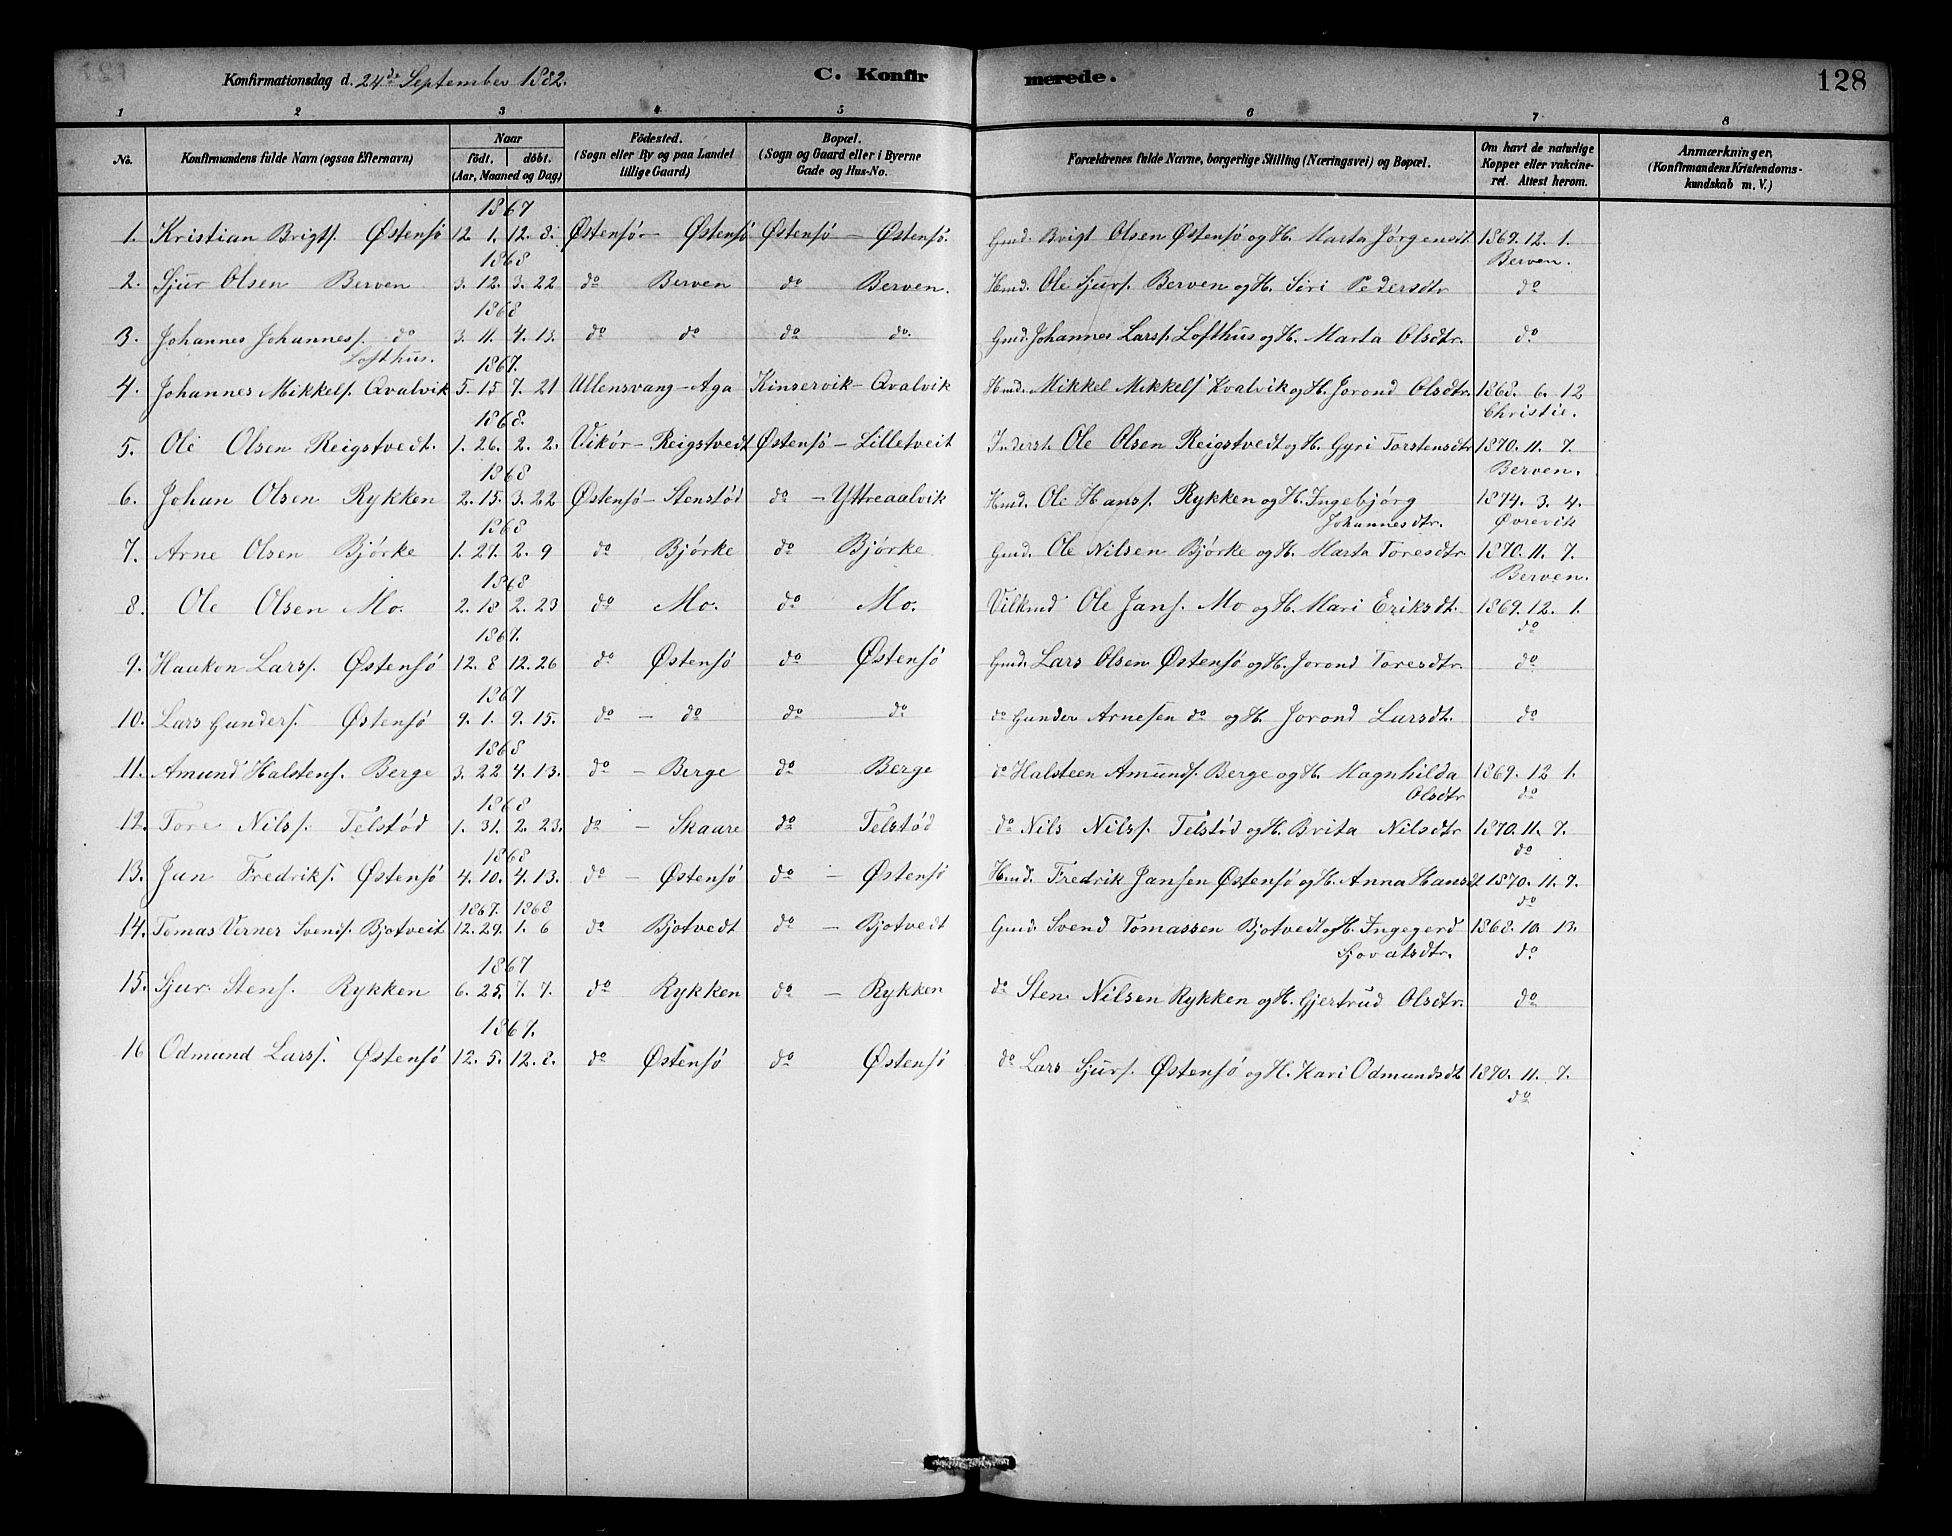 Konfirmationsdag d. 24de September 1882. C. Konfirmerede. 128
1 2 3 4 5 6 7 8
No. Konfirmandens fulde Navn (ogsaa Efternavn) Naar født. døbt. (Aar, Maaned og Dag) Födested. (Sogn eller By og paa Landet tillige Gaard) Bopæl. (Sogn og Gaard eller i Byerne Gade og Hus-No. Forældrenes fulde Navne, borgerlige Stilling (Næringsvei) og Bopæl. Om havt de naturlige Kopper eller vakcineret. Attest herom. Anmærkninger, (Konfirmandens Kristendomskundskab m. V.)
1867
1. Kristian Brigts. Østensø 12. 1. 12. 8. Østensø - Østensø Østensø - Østensø. Gmd. Brigt Olsen Østensø og H. Marta Jørgensdt. 1869. 12. 1.
Berven.
1868
2. Sjur Olsen Berven 3. 12. 3. 22 do Berven do Berven. Hmd. Ole Sjurs. Berven og H. Siri Pedersdtr do
1868
3. Johannes Johannes. do 3. 11. 4. 13. do do do do. Gmd. Johannes Lars. Lofthus og H. Marta Olsdtr. do
Lofthus.
1867.
4. Johannes Mikkels. Qvalvik 5. 15. 7. 21 Ullensvang - Aga Kinservik - Qvalvik Hmd. Mikkel Mikkels Kvalvik og H. Jorond Olsdtr. 1868. 6. 12
Christie.
1868.
5. Ole Olsen Reigstvedt. 1. 26. 2. 2. Vikør - Reigstvedt Østensø - Lilletveit Inderst Ole Olsen Reigstvedt og H. Gyri Torstensdtr 1870. 11. 7.
Berven.
1868
6. Johan Olsen Rykken 2. 15. 3. 22 Østensø - Stenstød do - Yttreaalvik Hmd. Ole Hans. Rykken og H. Ingebjørg 1874. 3. 4.
Johannesdtr. Øvrevik
1868
7. Arne Olsen Bjørke 1. 27. 2. 9 do Bjørke do Bjørke Gmd. Ole Nilsen Bjørke og H. Marta Toresdtr. 1870. 11. 7.
Berven.
1868
8. Ole Olsen Mo. 2. 18 2. 23 do Mo. do Mo. Vilkmd Ole Jans. Mo og H. Mari Eriksdt. 1869. 12. 1.
do
1867.
9. Haakon Lars. Østensø 12. 8 12. 26 do Østensø do Østensø Gmd. Lars Olsen Østensø og H. Jorond Toresdtr. do
1867
10. Lars Gunders. Østensø 9. 1. 9. 15. do - do do do do Gunder Arnesen do og H. Jorond Larsdt. do
1868
11. Amund Halstens. Berge 3. 22 4. 13. do - Berge do Berge do Halsteen Amunds. Berge og H. Magnhilda 1869. 12 1.
Olsdtr do
1868
12. Tore Nils. Telstød 1. 31. 2. 23. do - Skaare do Telstød do Nils Nils. Telstød og H. Brita Nilsdtr 1870. 11. 7.
do
1868
13. Jan Fredriks. Østensø 4. 10. 4. 13. do - Østensø do - Østensø Hmd. Fredrik Jansen Østensø og H. Anna Hansdt 1870. 11. 7.
do
1867. 1868
14. Tomas Verner Svends. Bjotveit 12. 29. 1. 6 do Bjotvedt do - Bjotvedt Gmd. Svend Tomassen Bjotvedt og H. Ingegerd 1868. 10. 13.
Sjovatsdtr. do
1867
15. Sjur Stens. Rykken 6. 25. 7. 7. do Rykken do - Rykken do Sten Nilsen Rykken og H. Gjertrud Olsdtr. do
1867.
16 Odmund Lars. Østensø 12. 5. 12. 8. do Østensø do Østensø do Lars Sjurs. Østensø og H. Kari Odmundsdt 1870. 11. 7.
do